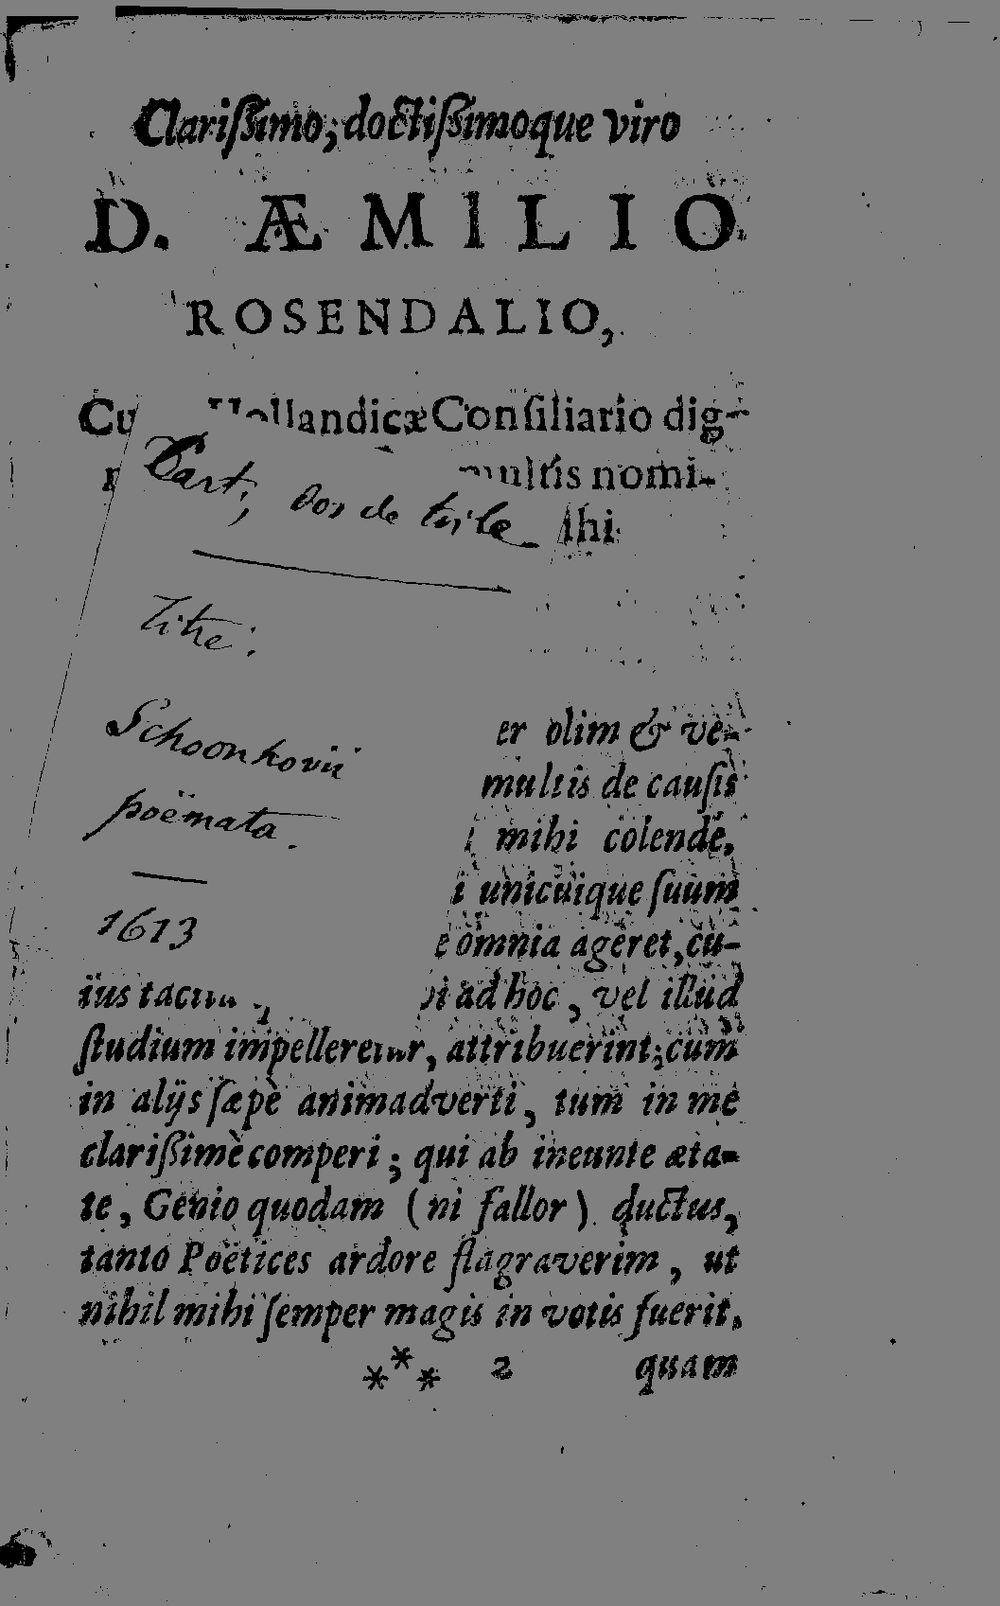 Clarißimo, doctißimoque viro
D. ÆMILIO
ROSENDALIO,
Hollandicæ Consiliario dig-
multis nomi-
Cart, dos de toile
Titre:
Schoonhovii
poëmata.
1613
er olim & ve-
multis de causis
mihi colende,
i unicuique suum
e omnia ageret, cu-
ius
ad hoc, vel illud
ſtudium impelleretur, attribuerint; cum
in alijs ſæpè animadverti, tum in me
clarißimè comperi; qui ab ineunte æta-
te, Genio quodam (ni fallor) ductus,
tanto Poëtices ardore flagraverim, ut
nihil mihi ſemper magis in votis fuerit,
*** 2 quam